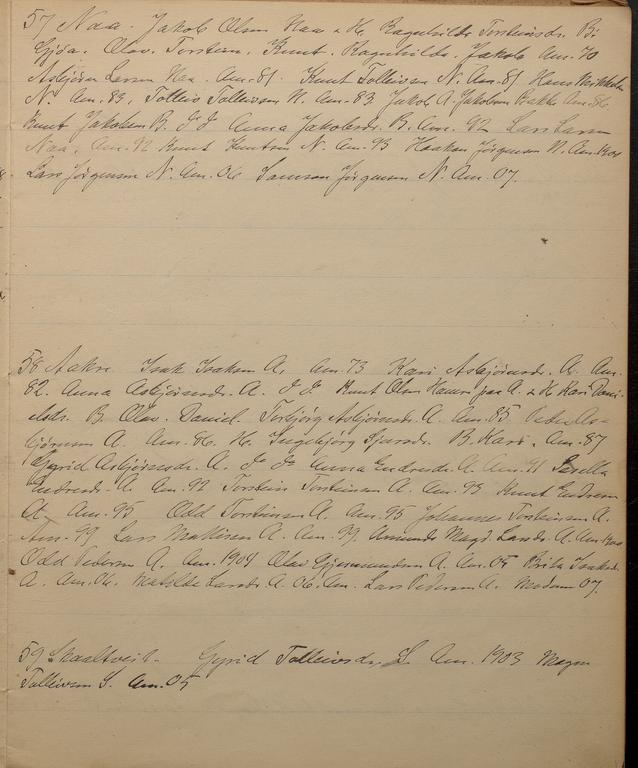 57 Naa. Jakob Olsen Naa & H. Ragnhilda Torsteinsdr. Bi
Gjöa. Olav. Torstein. Knut. Ragnhilda. Jakob Am. 70
Asbjörn Larsen Naa. Am. 81. Knut Tolleivsen N. Am. 81 Hans
N. Am. 83, Tolleiv Tolleivsen N. Am. 83 Jakob A. Jakobsen Bakke Am. 86.
Knut Jakobsen B. D: D: Anna Jakobsdr. B. Am. 92 Lars Larsen
Naa. Am. 92 Knut Knutsen N. Am. 93 Haakon Jörgensen N. Am.
Lars Jörgensen N. Am. 06 Samson Jörgensen N. Am. 07.
58 Aakre. Isak Isaksen A. Am. 73 Kari Asbjörnsdr. A. Am.
82. Anna Asbjörnsdr. A. D: D: Knut Olsen paa A. & H. Kari Dani-
elsdr. B. Olav. Daniel. Torbjörg Asbjörnsdr. A. Am. 85 Peder As-
björnsen A. Am. 86. H. Ingebjörg B. Kari. Am. 87
Gyrid Asbjörnsdr. A. D: D: Anna Endresdr. A. Am. 91
Endresdr. A. Am. 92 Torstein Torsteinsen A. Am. 93 Knut Endresen
A. Am. 95 Odd Torsteinsen A. Am. 95 Johannes Torsteinsen A.
Am. 99 Lars Mathisen A. Am. 99 Larsdr. A. Am.
Odd Pedersen A. Am. 1904 Olav Gjermundsen A. Am. 05 Brita Isaksdr.
A. Am. 06. Matilde Larsdr. A. 06. Am. Lars Pedersen A. 07.
59 Skaaltveit. Gyrid Tolleivsdr. S. Am. 1903 Magne
Tolleivsen S. Am. 05